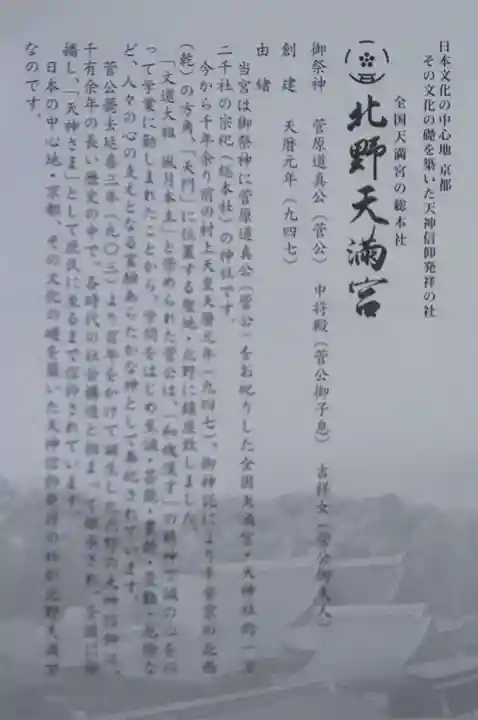 日本文化の中心地 京都
その文化の礎を築いた天神信仰発祥の社
全国天満宮の総本社
北野天満宮
御祭神 菅原道真公（菅公） 中将殿（菅公御子息） 吉祥女（菅公御夫人）
創建 天暦元年（九四七）
由緒
当宮は御祭神に菅原道真公（菅公）をお祀りした全国天満宮・天神社約一万
二千社の宗祀（総本社）の神社です。
今から千年余り前の村上天皇天暦元年（九四七）、御神託により平安京の北西
（乾）の方角、「天門」に位置する聖地・北野に鎮座致しました。
「文道大祖 風月本主」と崇められた菅公は、「和魂漢才」の精神で誠の心を以
って学業に勤しまれたことから、学問をはじめ至誠・芸能・農耕・厄除な
ど、人々の心の支えとなる霊験あらたかな神として奉祀されています。
菅公薨去延喜三年（九〇三）より百年をかけて誕生した北野の天神信仰は、
千有余年の長い歴史の中で、各時代の社会構造と相まって継承され、全国に伝
播し、「天神さま」として庶民に至るまで信仰されています。
日本の中心地・京都、その文化の礎を築いた天神信仰発祥の社が北野天満宮
なのです。